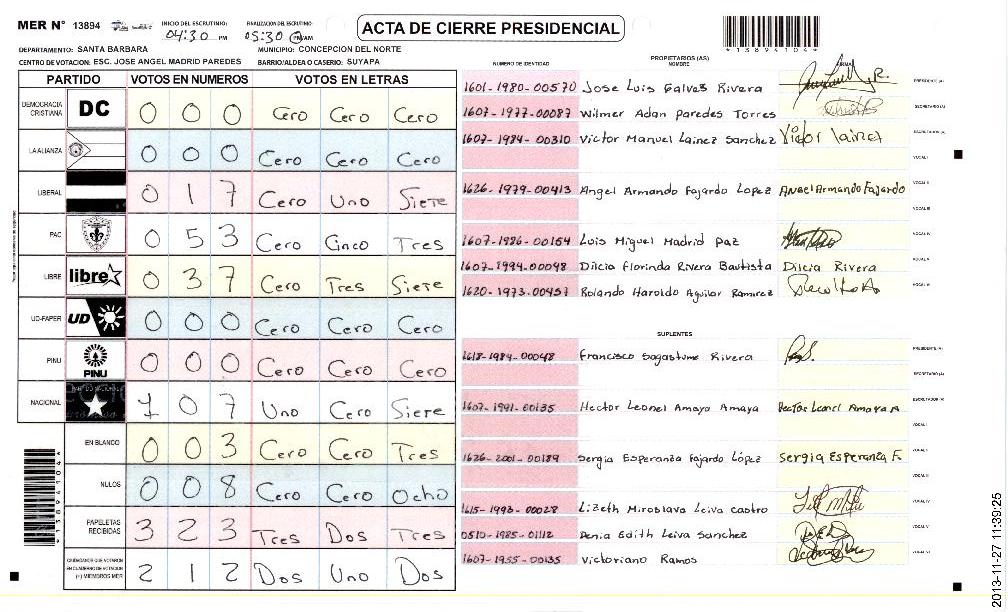 MER N° 13894
INICIO DEL ESCRUTINIO: 04:30 PM
FINALIZACION DEL ESCRUTINIO: 05:30 PM/AM
ACTA DE CIERRE PRESIDENCIAL
*13894104*
DEPARTAMENTO: SANTA BARBARA
MUNICIPIO: CONCEPCION DEL NORTE
CENTRO DE VOTACION: ESC. JOSE ANGEL MADRID PAREDES
BARRIO/ALDEA O CASERIO: SUYAPA
PARTIDO VOTOS EN NUMEROS VOTOS EN LETRAS
DEMOCRACIA CRISTIANA DC 0 0 0 Cero Cero Cero
LA ALIANZA 0 0 0 Cero Cero Cero
LIBERAL 0 1 7 Cero Uno Siete
PAC 0 5 3 Cero Cinco Tres
LIBRE libre 0 3 7 Cero Tres Siete
UD-FAPER UD 0 0 0 Cero Cero Cero
PINU PINU 0 0 0 Cero Cero Cero
NACIONAL 1 0 7 Uno Cero Siete
EN BLANCO 0 0 3 Cero Cero Tres
NULOS 0 0 8 Cero Cero Ocho
PAPELETAS RECIBIDAS 3 2 3 Tres Dos Tres
CIUDADANOS QUE VOTARON EN CUADERNO DE VOTACION (+) MIEMBROS MER 2 1 2 Dos Uno Dos
*13894104*
PROPIETARIOS (AS)
NUMERO DE IDENTIDAD NOMBRE FIRMA
1601-1980-00570 Jose Luis Galvez Rivera PRESIDENTE (A)
1607-1977-00087 Wilmer Adan Paredes Torres SECRETARIO (A)
1607-1984-00310 Victor Manuel Lainez Sanchez Victor lainez ESCRUTADOR (A)
VOCAL I
1626-1979-00413 Angel Armando Fajardo Lopez Angel Armando Fajardo VOCAL II
VOCAL III
1607-1986-00154 Luis Miguel Madrid Paz VOCAL IV
1607-1994-00098 Dilcia florinda Rivera Bautista Dilcia Rivera VOCAL V
1620-1973-00457 Rolando Haroldo Aguilar Ramirez VOCAL VI
SUPLENTES
1618-1984-00048 Francisco Sagastume Rivera PRESIDENTE (A)
SECRETARIO (A)
1607-1991-00135 Hector Leonel Amaya Amaya Hector Leonel Amaya A ESCRUTADOR (A)
VOCAL I
1626-2001-00189 Sergia Esperanza Fajardo López Sergia Esperanza F. VOCAL II
VOCAL III
1615-1993-00028 Lizeth Miroslava Leiva Castro VOCAL IV
0510-1985-01112 Denia Edith Leiva Sanchez VOCAL V
1607-1955-00135 Victoriano Ramos VOCAL VI
2013-11-27 11:39:25